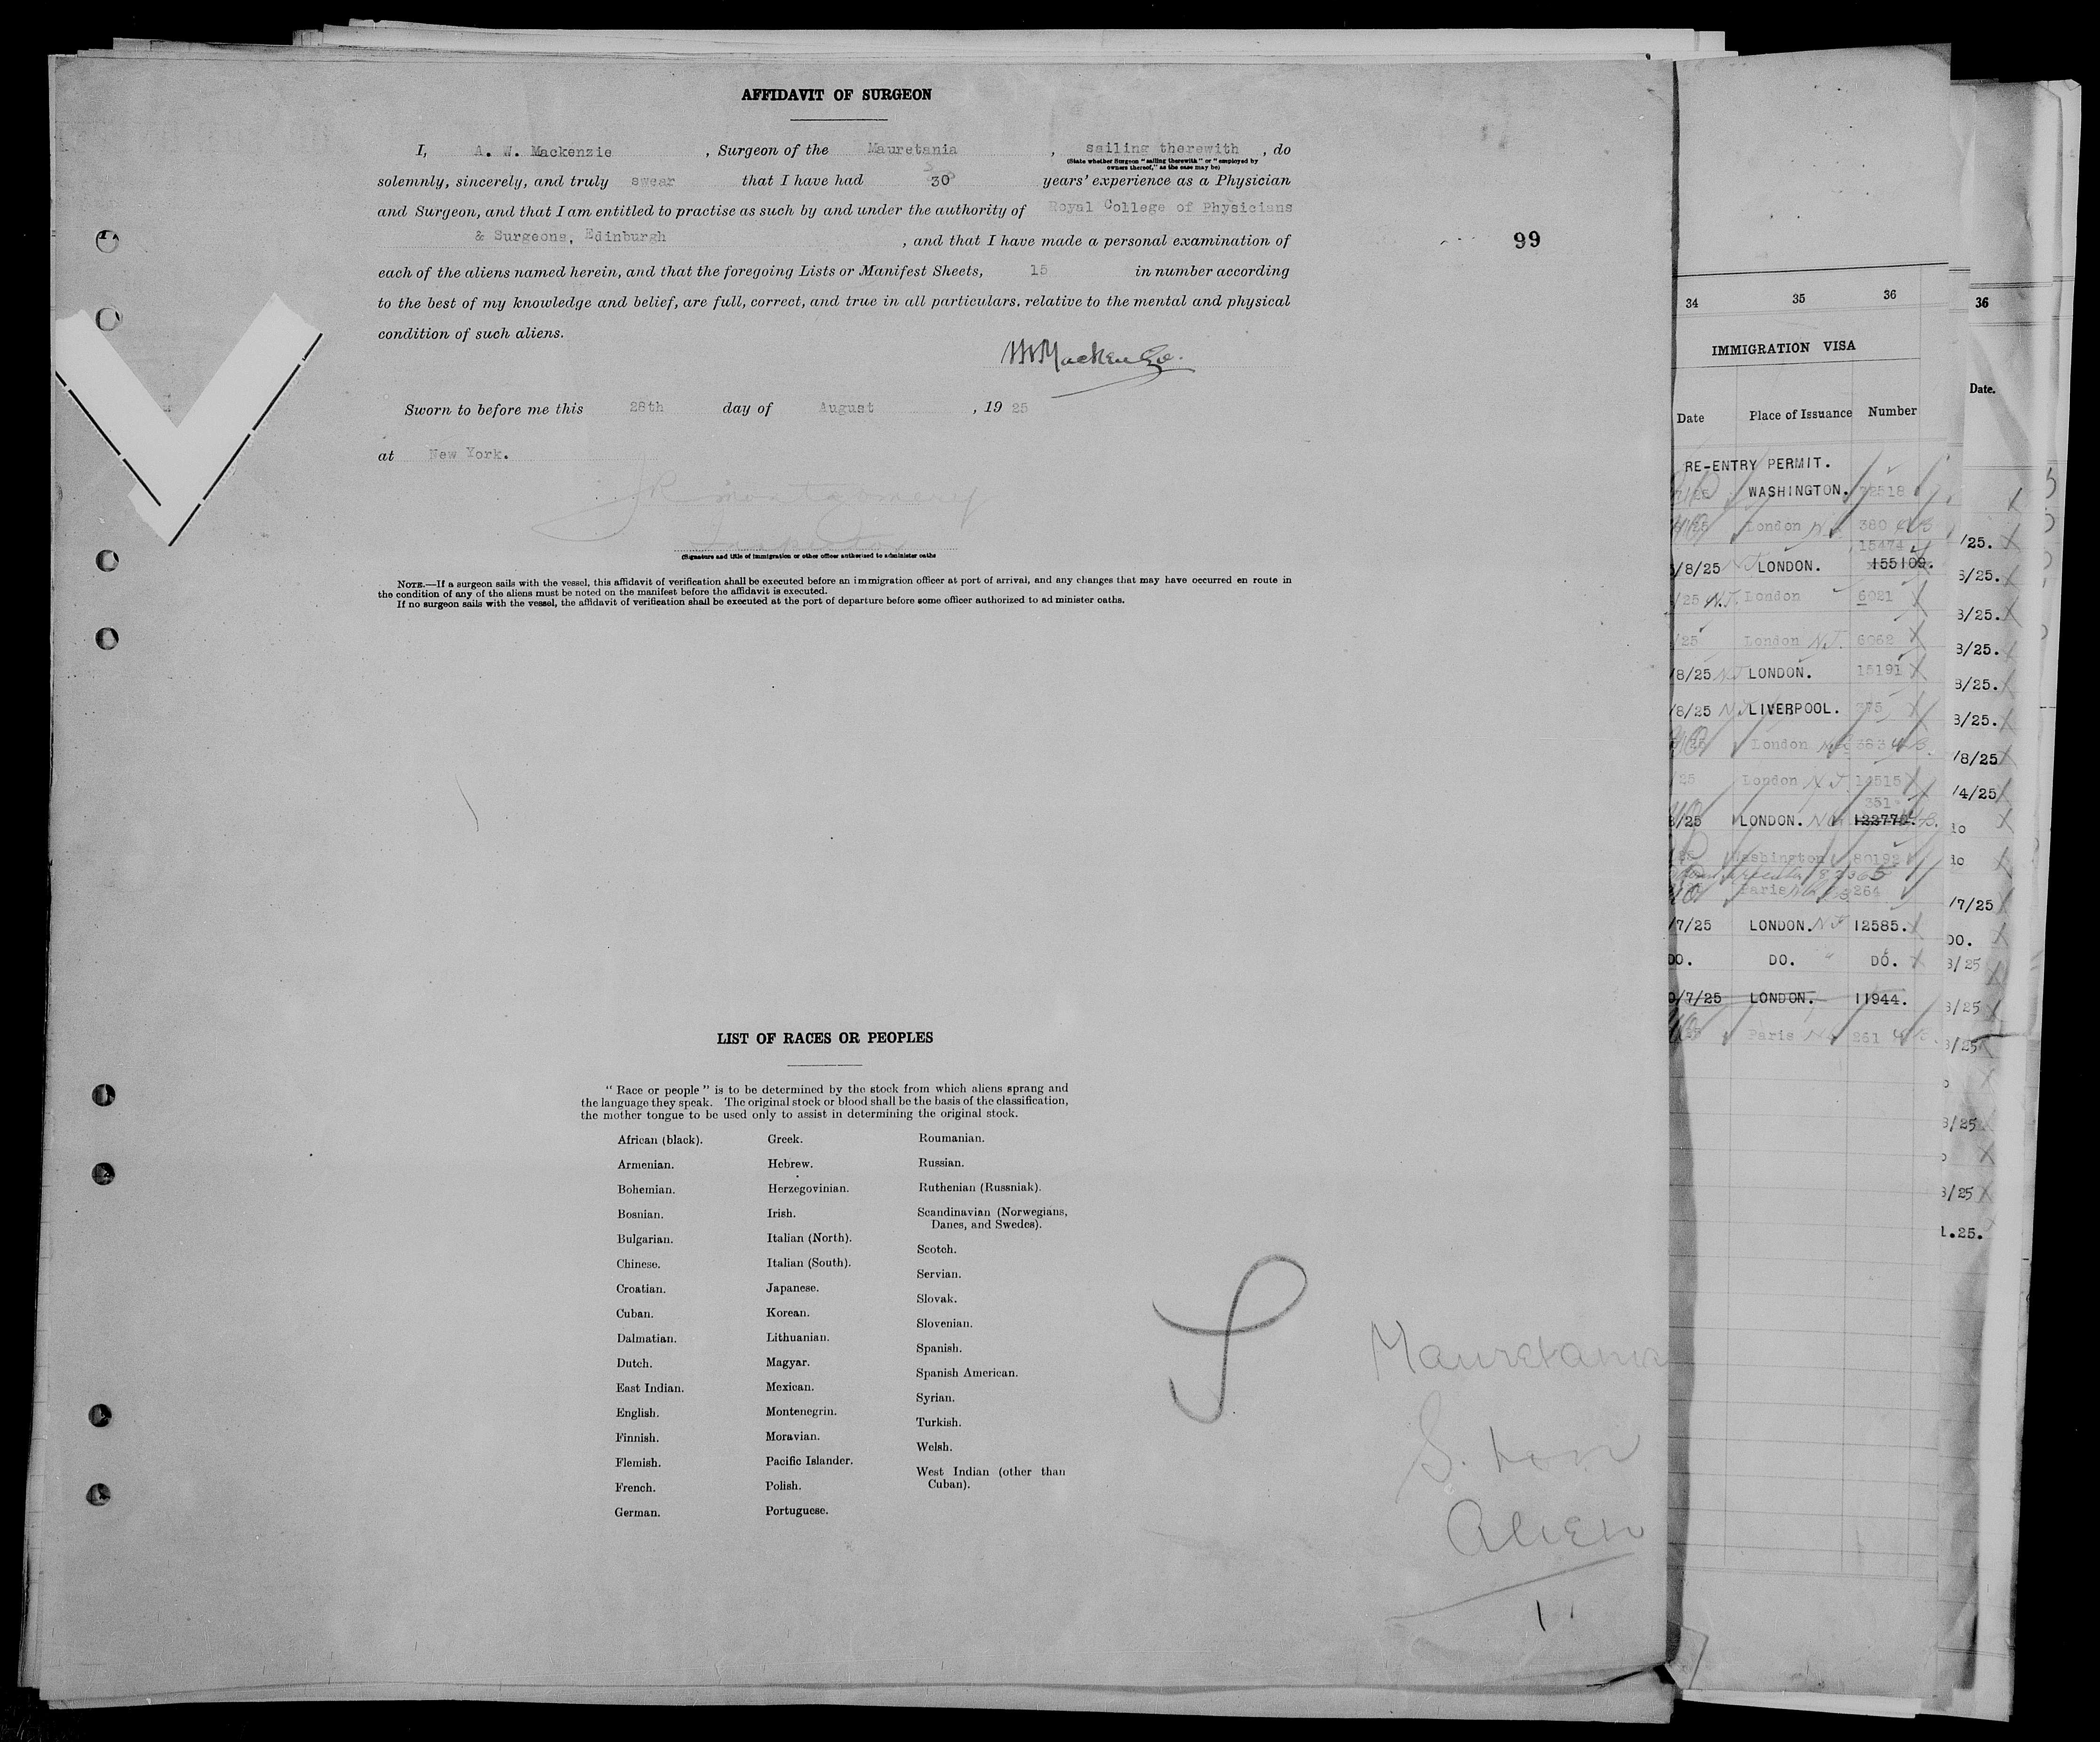 AFFIDAVIT OF SURGEON
I, A. W. Mackenzie , Surgeon of the Mauretania , sailing therewith , do
(State whether Surgeon "sailing therewith" or "employed by
owners thereof," as the case may be)
solemnly, sincerely, and truly swear that I have had 30 years' experience as a Physician
and Surgeon, and that I am entitled to practise as such by and under the authority of Royal College of Physicians
& Surgeons, Edinburgh , and that I have made a personal examination of
99
each of the aliens named herein, and that the foregoing Lists or Manifest Sheets, 15 in number according
to the best of my knowledge and belief, are full, correct, and true in all particulars, relative to the mental and physical
condition of such aliens.
Mackenzie.
Sworn to before me this 28th day of August , 19 25
at New York.
J R Montgomery
Inspector
(Signature and title of immigration or other officer authorised to administer oaths
NOTE.—If a surgeon sails with the vessel, this affidavit of verification shall be executed before an immigration officer at port of arrival, and any changes that may have occurred en route in
the condition of any of the aliens must be noted on the manifest before the affidavit is executed.
If no surgeon sails with the vessel, the affidavit of verification shall be executed at the port of departure before some officer authorized to ad minister oaths.
LIST OF RACES OR PEOPLES
" Race or people " is to be determined by the stock from which aliens sprang and
the language they speak. The original stock or blood shall be the basis of the classification,
the mother tongue to be used only to assist in determining the original stock.
African (black).
Armenian.
Bohemian.
Bosnian.
Bulgarian.
Chinese.
Croatian.
Cuban.
Dalmatian.
Dutch.
East Indian.
English.
Finnish.
Flemish.
French.
German.
Greek.
Hebrew.
Herzegovinian.
Irish.
Italian (North).
Italian (South).
Japanese.
Korean.
Lithuanian.
Magyar.
Mexican.
Montenegrin.
Moravian.
Pacific Islander.
Polish.
Portuguese.
Roumanian.
Russian.
Ruthenian (Russniak).
Scandinavian (Norwegians,
Danes, and Swedes).
Scotch.
Servian.
Slovak.
Slovenian.
Spanish.
Spanish American.
Syrian.
Turkish.
Welsh.
West Indian (other than
Cuban).
Mauretania
S. ton
Alien
1
34 35 36
IMMIGRATION VISA
Date Place of Issuance Number
RE-ENTRY PERMIT.
WASHINGTON. 72518
/25 London 380
15474
/8/25 LONDON. 155109.
/25 N.J. London 6021
/25 London N.J. 6062
/8/25 N.J LONDON. 15191
/8/25 LIVERPOOL. 375
/25 London 383
/25 London N.J. 14515
351
/25 LONDON. 122770.
Washington 80192
Paris 264
/7/25 LONDON. N J 12585.
DO. DO. DO.
/7/25 LONDON. 11944.
/25 Paris 261
36
Date.
/25.
8/25.
8/25.
8/25.
8/25.
8/25.
/8/25
/4/25
do
do
/7/25
DO.
8/25
8/25
8/25
8/25
8/25
.25.